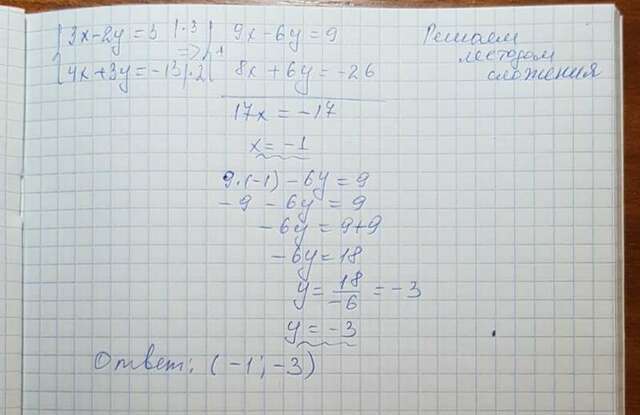 {3x-2y=3 |·3 | 9x-6y=9
{4x+3y=-13|·2 | 8x+6y=-26
Решаем
методом
сложения
17x = -17
x = -1
9·(-1) - 6y = 9
-9 - 6y = 9
-6y = 9+9
-6y = 18
y = 18/-6 = -3
y = -3
Ответ: (-1; -3)